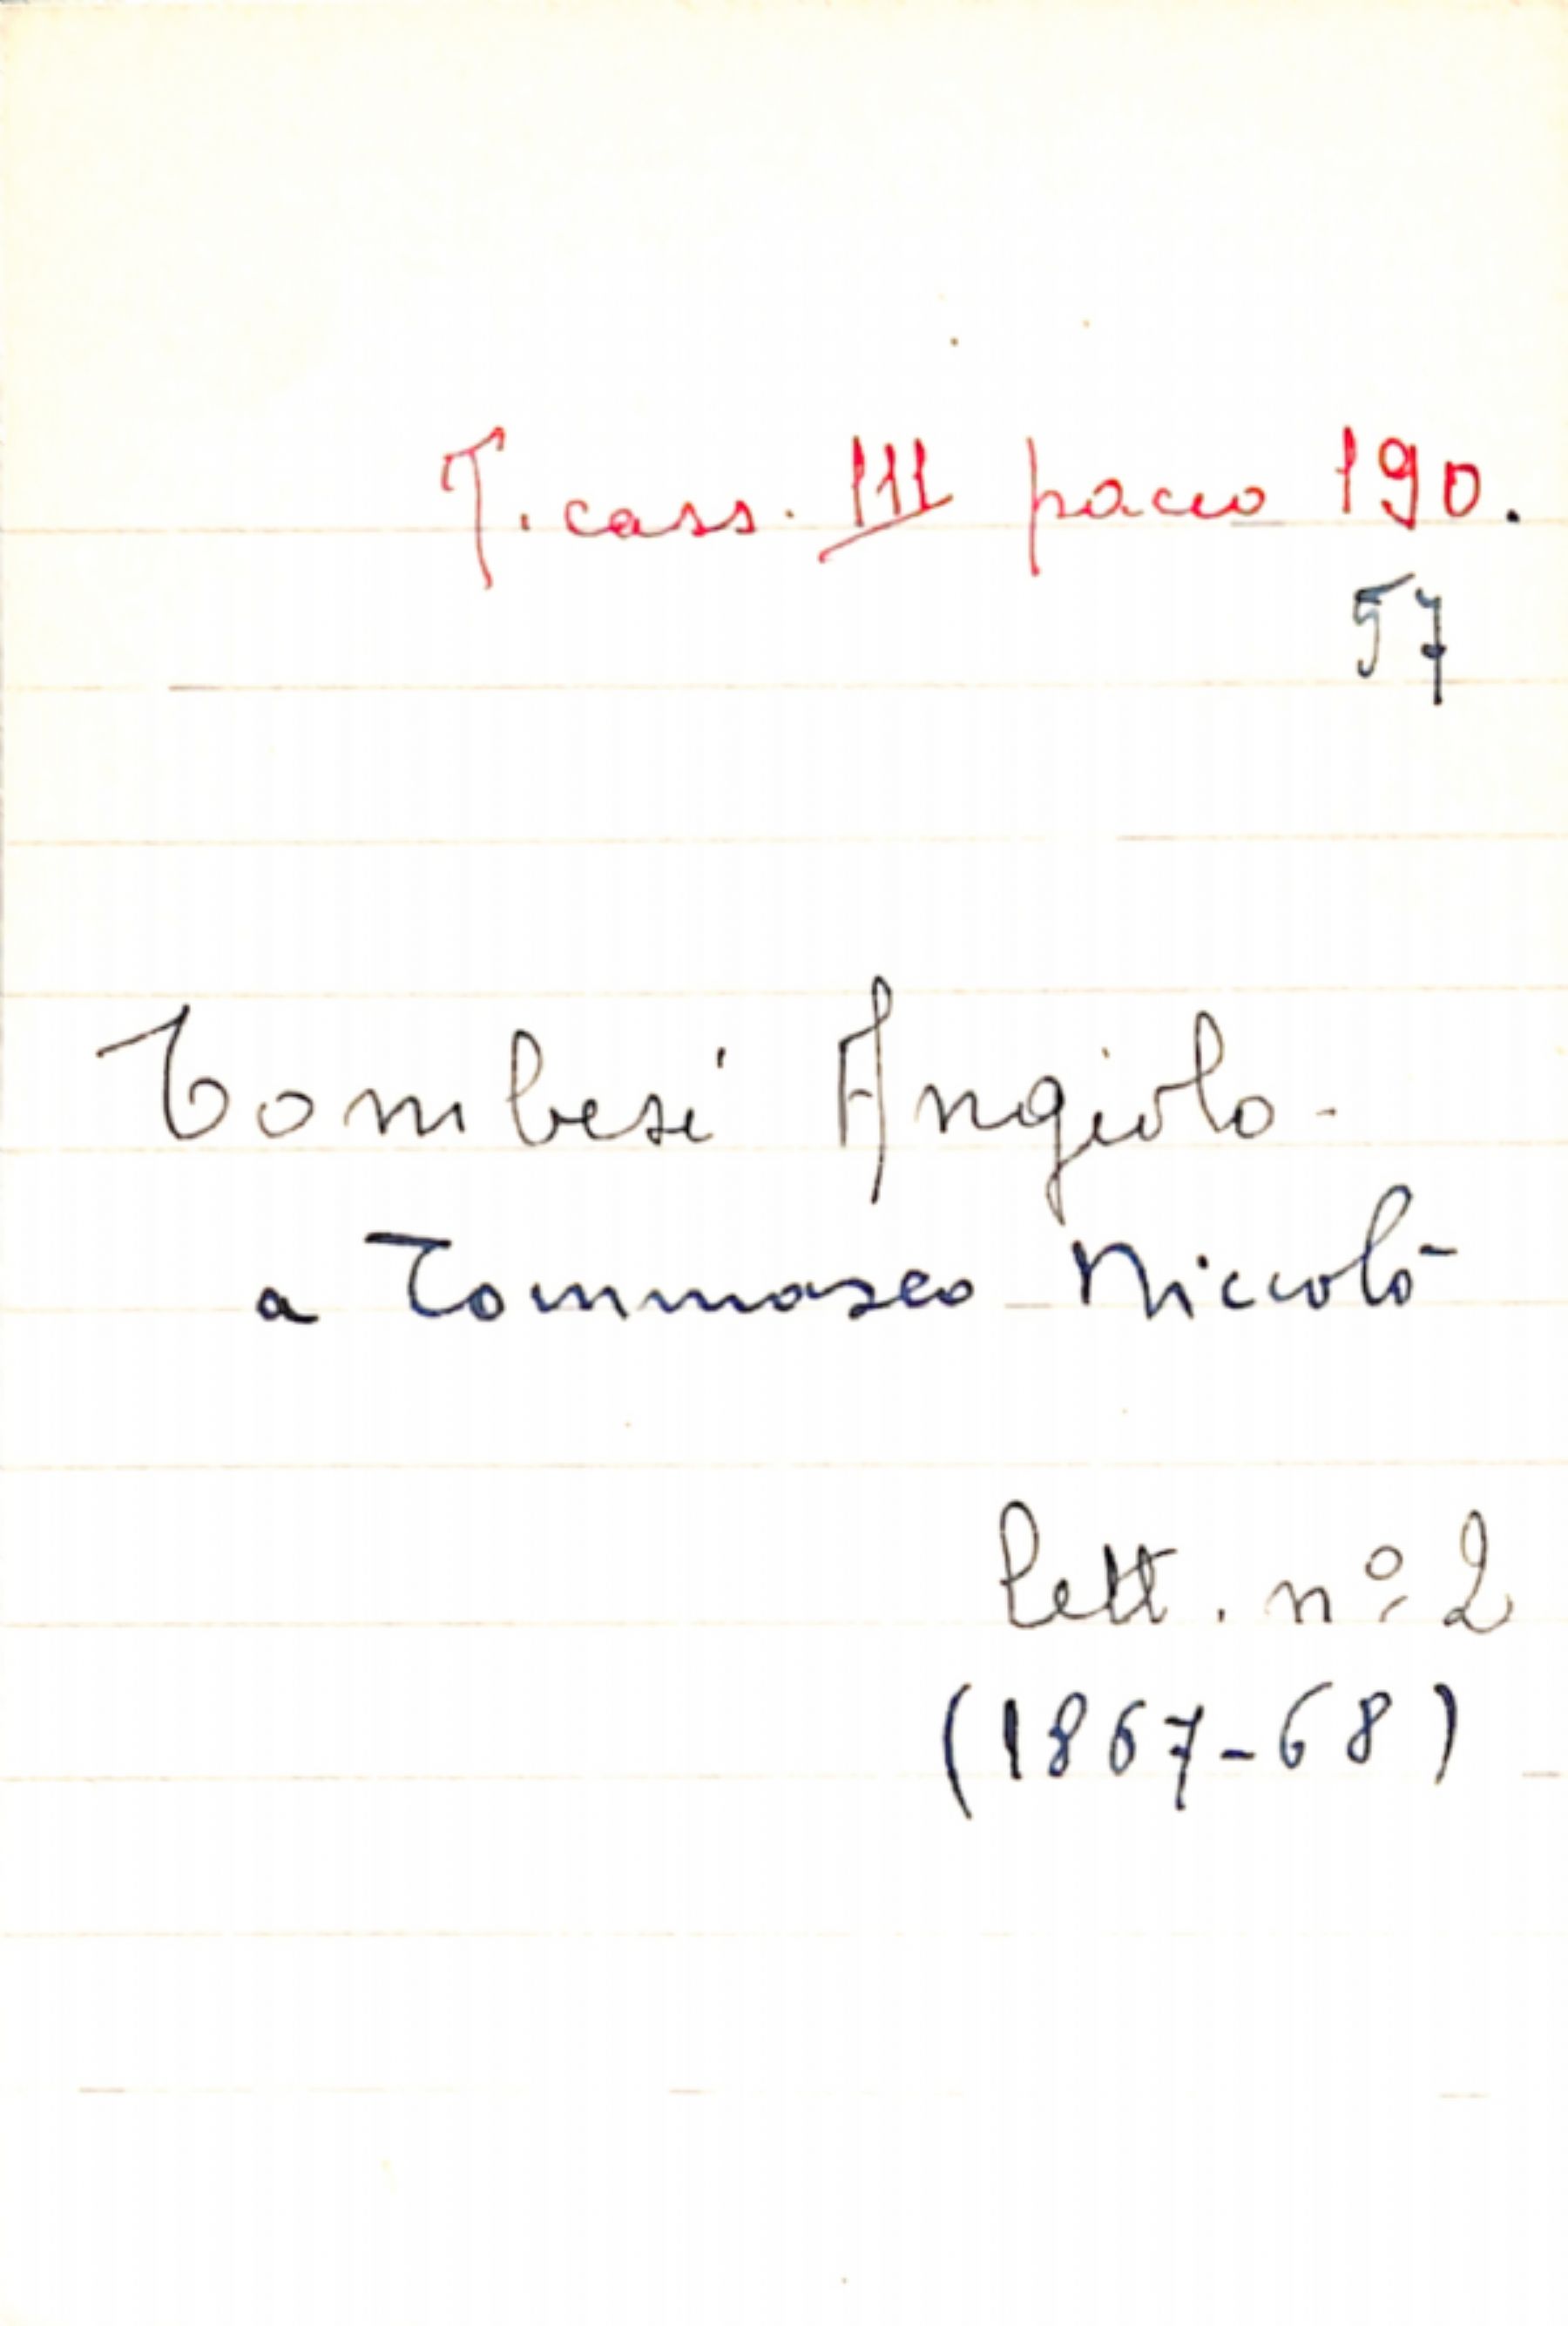 T. cass. III pacco 190.
57
Tombesi Angiolo.
a Tommaseo Niccolò
lett. nº 2
(1867-68)